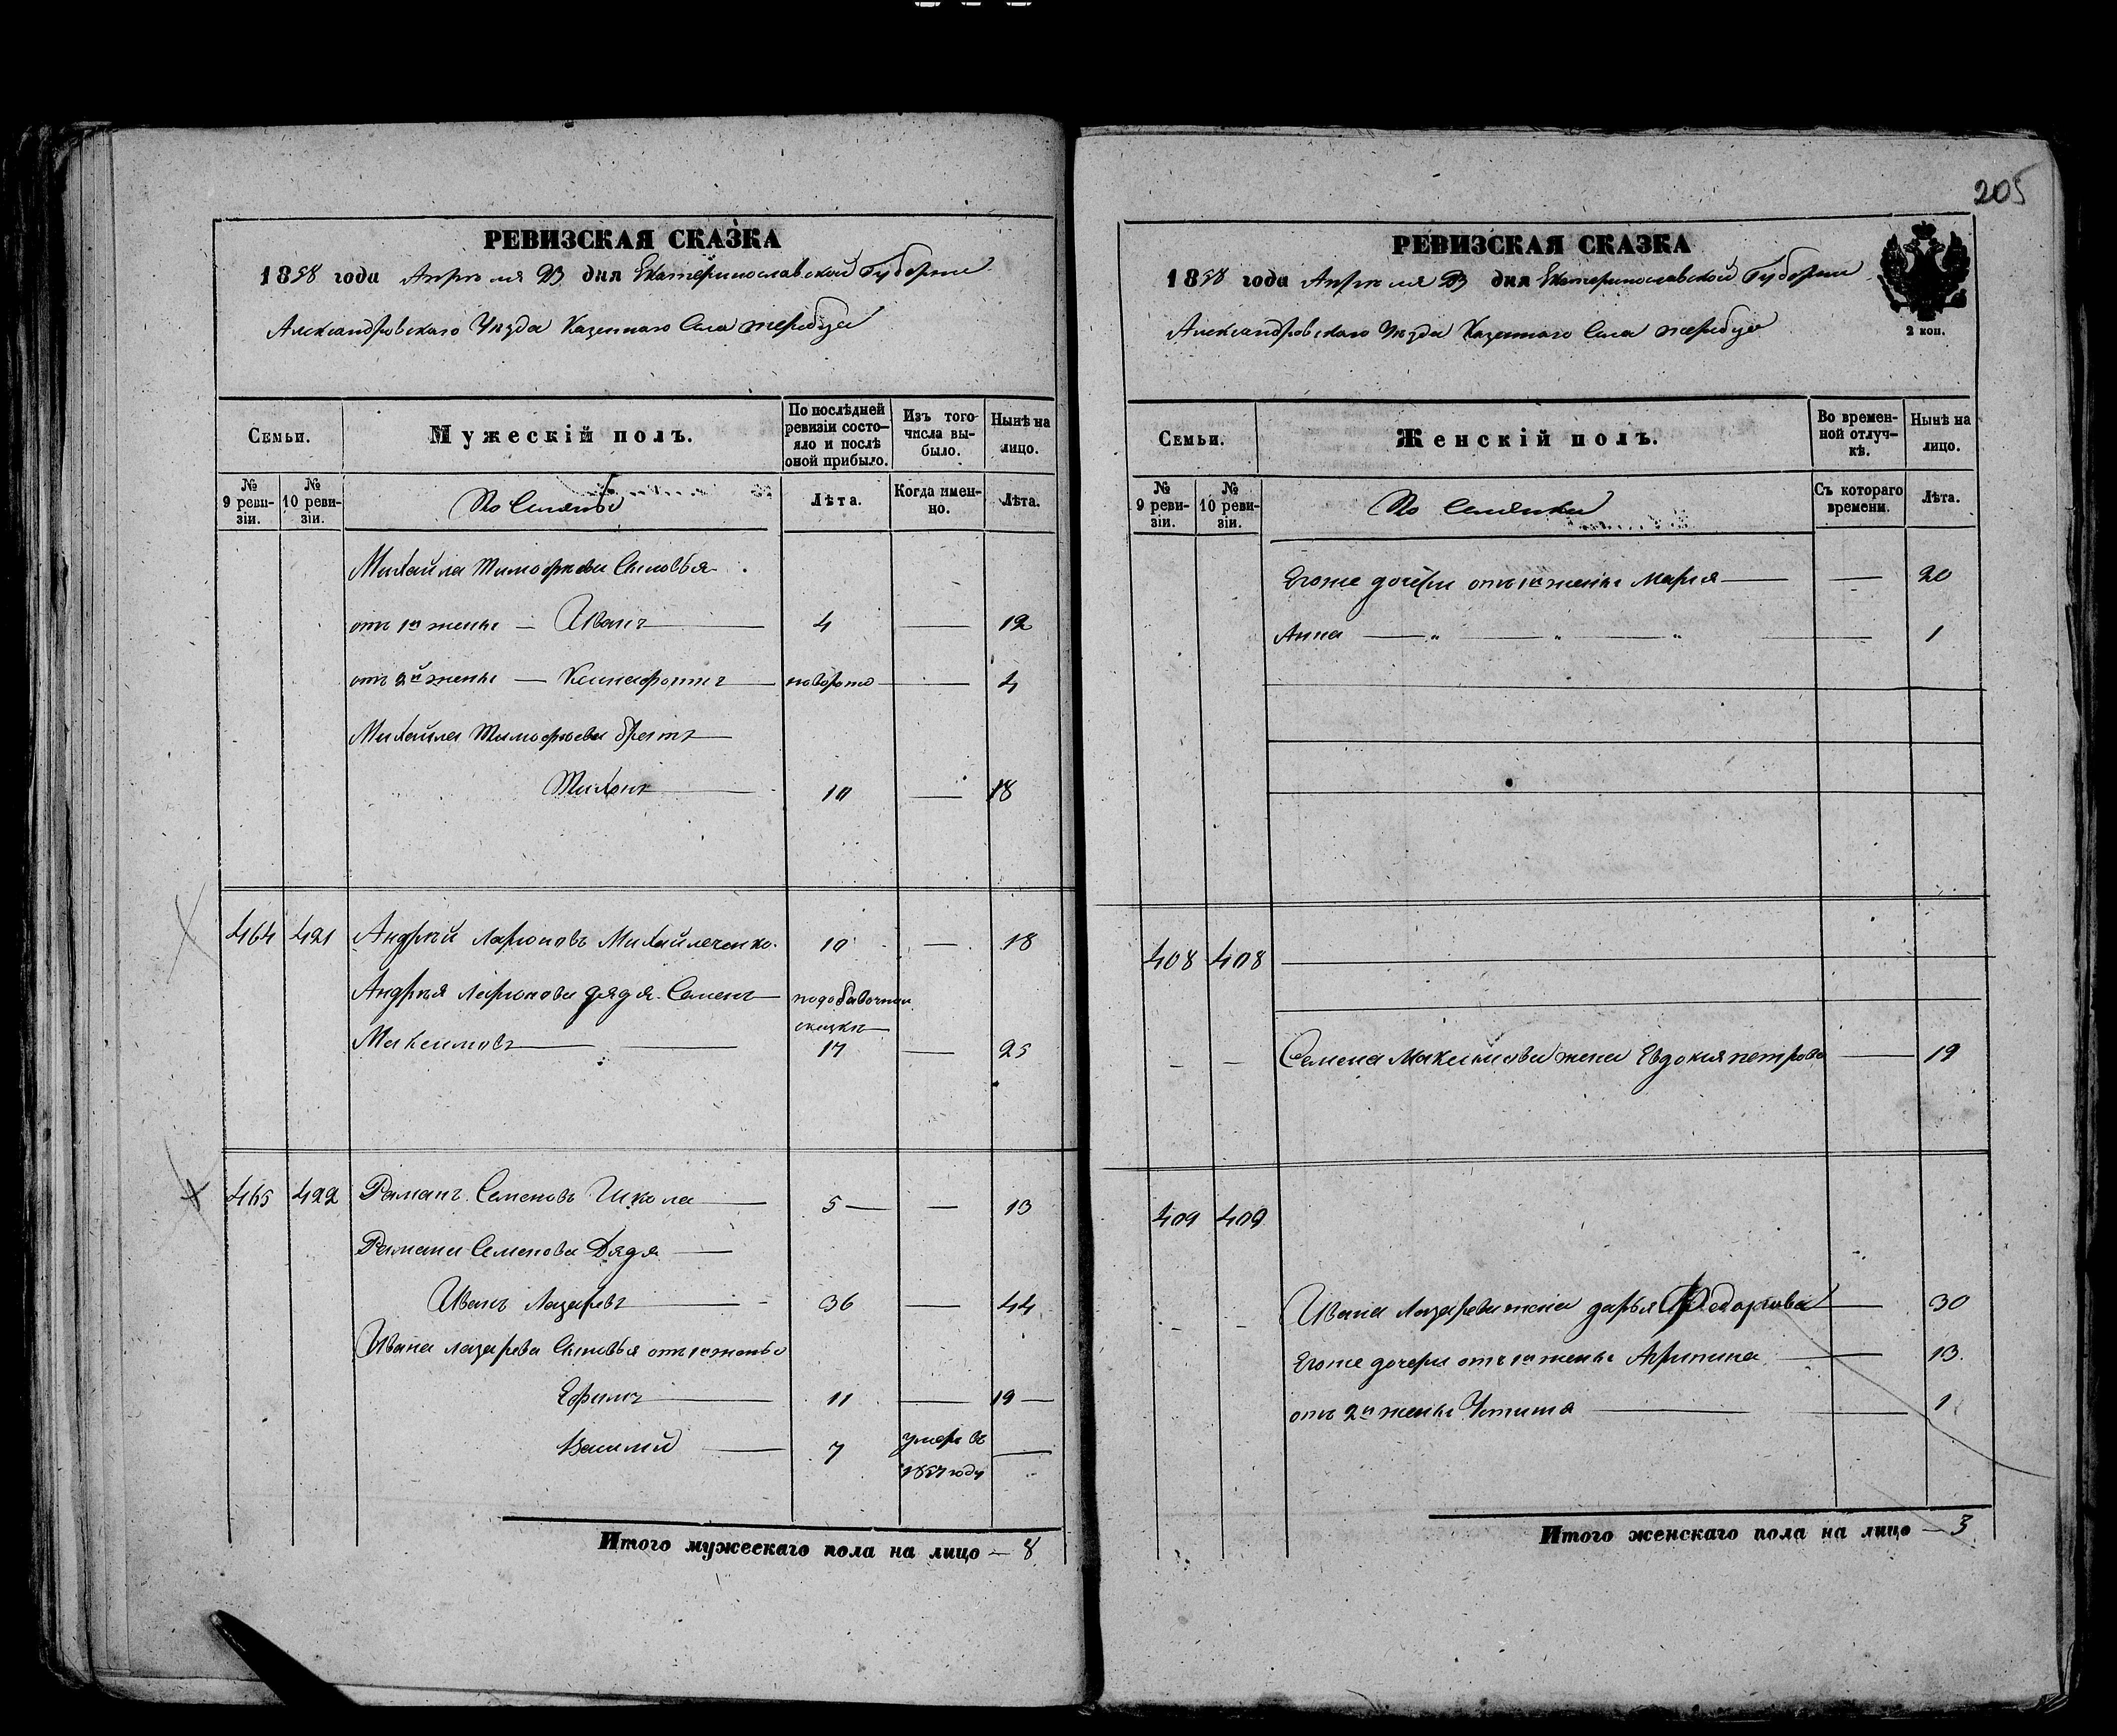 205
РЕВИЗСКАЯ СКАЗКА
1858 года Апреля 23 дня Екатеринославской Губернии
Александровскаго Уезда Казеннаго Села жеребца
Семьи.
Мужескій полъ.
По послѣдней ревизіи состо-
яло и послѣ
оной прибыло.
Изъ того-
числа вы-
было.
Нынѣ на
лицо.
№
9 реви-
зіи.
№
10 реви-
зіи.
Лѣта.
Когда имен-
но.
Лѣта.
Михайла Тимофеева Сыновья
отъ 1й жены — Иванъ 4 — 12
отъ 2й жены — 4
Михайла Тимофеева братъ
Тихонъ 10 — 18
464 421 Андрей Ларионовъ Михайличенко 10 — 18
Андрея Ларионова дядя Семенъ
сказки
Максимовъ 17 — 25
465 422 Раманъ Семеновъ Школа 5 — — 13
Рамана Семенова Дядя
Иванъ Лазаревъ 36 — 44
Ивана лазарева Сыновья отъ 1й жены
Ефимъ 11 — 19
Василий 7 умеръ въ
1857 году
Итого мужескаго пола на лицо — 8
РЕВИЗСКАЯ СКАЗКА
1858 года Апреля 23 дня Екатеринославской Губернии
Александровскаго Уезда Казеннаго Села жеребца
2 коп.
Семьи.
Женскій полъ.
Во времен-
ной отлуч-
кѣ.
Нынѣ на
лицо.
№
9 реви-
зіи.
№
10 реви-
зіи.
Съ котораго
времени.
Лѣта.
Егоже дочери отъ 1й жены Мария — 20
Анна — „ — „ — „ — 1
408 408
— — Семена Максимова жена Евдокия петрова — 19
409 409
— — Ивана Лазарева жена дарья Федорова — 30
Егоже дочери отъ 1й жены Агрипина — 13
отъ 2й жены — 1
Итого женскаго пола на лицо — 3